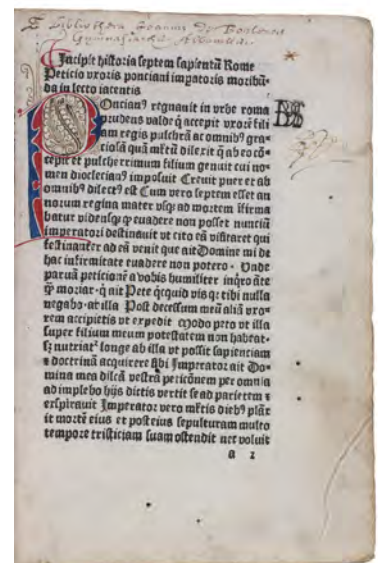 E Bibliotheca Joannis De
Gymnasiarchæ
Incipit historia septem sapientũ Rome
Peticio vxoris ponciani imꝑatoris moribũ-
da in lecto iacentis
Poncianꝰ regnauit in vrbe roma
prudens valde q̃ accepit vxorẽ fili
am regis pulchrã ac omnibꝰ gra-
ciosã quã dilexit q̃ ab eo cõ-
cepit et pulcherrimum filium genuit cui no-
men dioclecianꝰ imposuit Creuit puer et ab
omnibꝰ dilectꝰ est Cum vero septem esset an
norum regina mater vsq; ad mortem ĩfirma
batur vidensq; ꝙ euadere non posset nunciũ
imperatori destinauit vt cito eã visitaret qui
festinanter ad eã venit que ait Domine mi de
hac infirmitate euadere non potero · Vnde
paruã peticionẽ a vobis humiliter inq̃ro ãte
ꝙ moriar · q̃ ait Pete q̃cquid vis q; tibi nulla
negabo · at illa Post decessum meũ aliã vxo-
rem accipietis vt expedit Modo peto vt illa
super filium meum potestatem non habeat-
sꝫ nutriatᷣ longe ab illa vt possit sapienciam
⁊ doctrinã acquirere sibi Imperator ait Do-
mina mea dilcã vestrã peticõnem per omnia
adimplebo hijs dictis vertit se ad parietem ⁊
exspirauit Imperator vero diebꝰ plãx
it mortẽ eius et post eius sepulturam multo
tempore tristiciam suam ostendit nec voluit
a 2